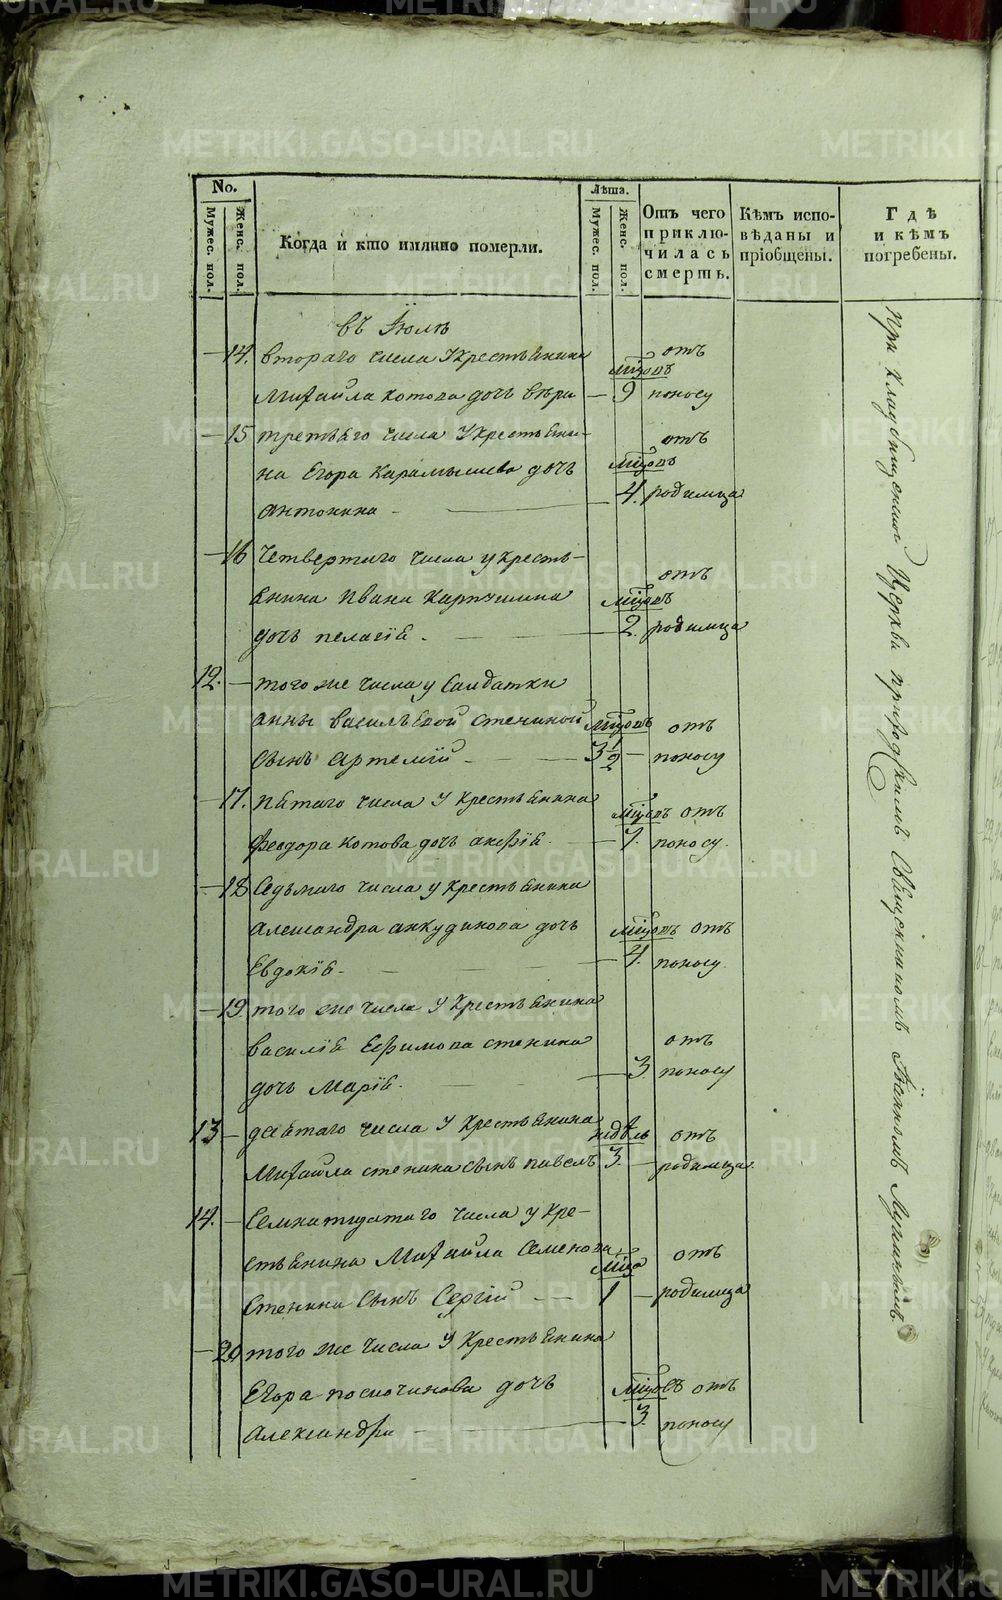 METRIKI.GASO-URAL.RU
No.
Мужес. пол.
Женс. пол.
Когда и кто имянно померли.
Лѣта.
Мужес. пол.
Женс. пол.
Отъ чего
приклю-
чилась
смерть.
Кѣмъ испо-
вѣданы и
пріобщены.
Гдѣ
и кѣмъ
погребены.
въ Іюлѣ
— 14. втораго числа у крестьянина мѣцовъ отъ
Михайла Котова дочь вѣра — 9 поносу
— 15 третьяго числа у крестьяни- отъ
на Егора Карамышева дочь мѣцовъ
антонина — 4. родимца
— 16 Четвертаго числа у кресть- отъ
янина Ивана мѣцовъ
дочь пелагія — 2. родимца
12. — того же числа у Солдатки
анны васильевой Стениной мѣцовъ отъ
сынъ артемій — 3 1/2 — поносу
— 17. пятаго числа у крестьянина мѣцовъ отъ
Феодора Котова дочь — 7. поносу.
— 18 Седьмаго числа у крестьянина
александра анкудинова дочь мѣцовъ отъ
Евдокія — 4. поносу.
— 19. того же числа у крестьянина
василія Ефимова стенина отъ
дочь Марія — 3 поносу
13 — десятаго числа у крестьянина недѣль отъ
Михайла стенина сынъ павелъ 3. — родимца
14. — Семнатцатаго числа у кре-
стьянина Михайла Семенова мѣца отъ
Стенина Сынъ Сергій — 1 — родимца
— 20 того же числа у крестьянина
Егора дочь мѣцовъ отъ
александра — 3. поносу
При кладбищенной Церкви приходскимъ Священникомъ Іоанномъ